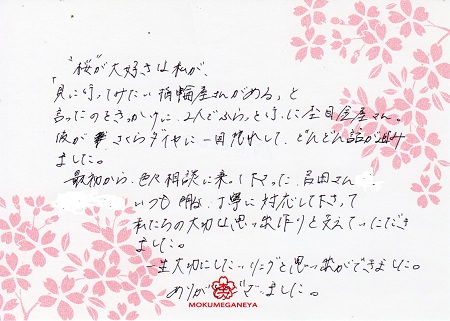 "桜"が大好きな私が、
「見に行ってみたい指輪屋さんがある」と
言ったのときっかけに、2人でふらっと行った杢目金屋さん。
彼が さくらダイヤに一目惚れして、どんどん話が進み
ました。
最初から、色々相談に乗って下さった、吉田さん
いつも 丁寧に対応して下さって
私たちの大切な思い出作りを支えていただき
ました。
一生大切にしたいリングと思い出ができました。
ありがとうございました。
MOKUMEGANEYA